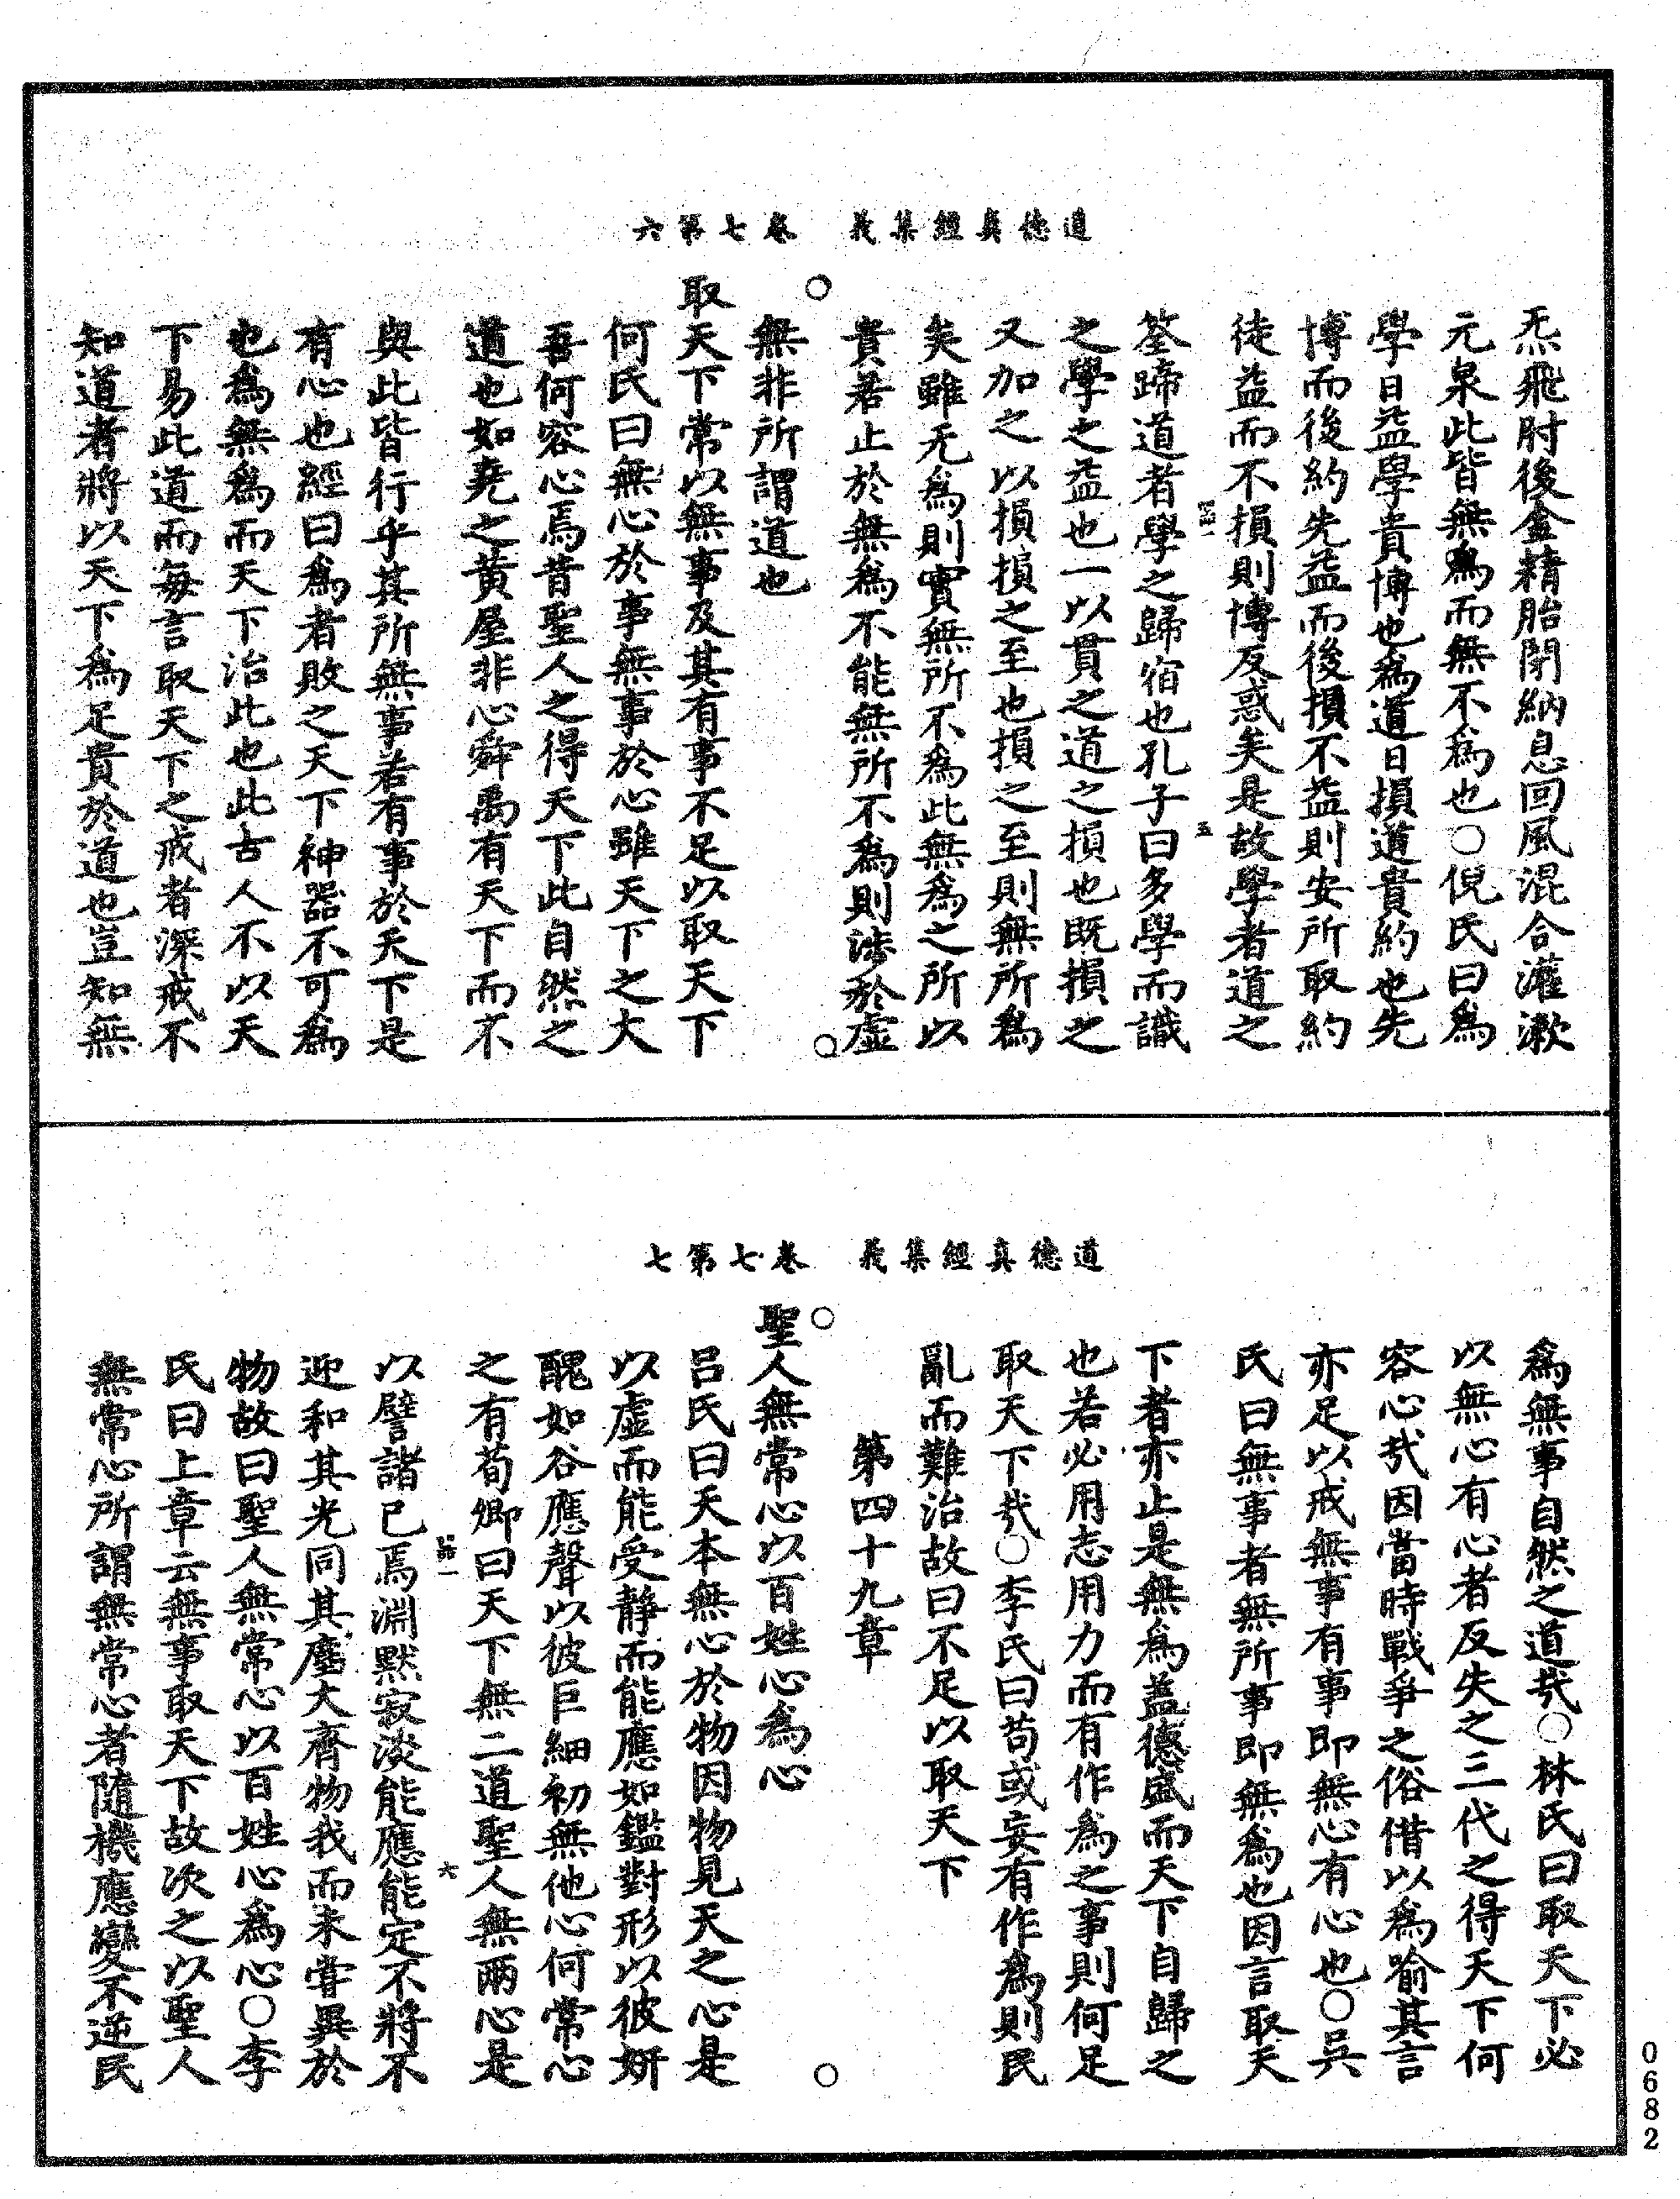 道德真經集義　卷七第六
炁飛肘後金精胎閉納息回風混合灌漱
元泉此皆無為而無不為也○倪氏曰為
學日益學貴博也為道日損道貴約也先
博而後約先益而後損不益則安所取約
徒益而不損則博反惑矣是故學者道之
筌蹄道者學之歸宿也孔子曰多學而識
之學之益也一以貫之道之損也既損之
又加之以損損之至也損之至則無所為
矣雖无為則實無所不為此無為之所以
貴若止於無為不能無所不為則涉於虛
無非所謂道也
取天下常以無事及其有事不足以取天下
何氏曰無心於事無事於心雖天下之大
吾何容心焉昔聖人之得天下此自然之
道也如堯之黃屋非心舜禹有天下而不
與此皆行乎其所無事若有事於天下是
有心也經曰為者敗之天下神器不可為
也為無為而天下治此也此古人不以天
下易此道而每言取天下之戒者深戒不
知道者將以天下為足貴於道也豈知無
道德真經集義　卷七第七
為無事自然之道哉○林氏曰取天下必
以無心有心者反失之三代之得天下何
容心哉因當時戰爭之俗借以為喻其言
亦足以戒無事有事即無心有心也○吳
氏曰無事者無所事即無為也因言取天
下者亦止是無為蓋德盛而天下自歸之
也若必用志用力而有作為之事則何足
取天下哉○李氏曰苟或妄有作為則民
亂而難治故曰不足以取天下
第四十九章
聖人無常心以百姓心為心
呂氏曰天本無心於物因物見天之心是
以虛而能受靜而能應如鑑對形以彼妍
醜如谷應聲以彼巨細初無他心何常心
之有荀卿曰天下無二道聖人無兩心是
以譬諸已焉淵默寂淡能應能定不將不
迎和其光同其塵大齊物我而未嘗異於
物故曰聖人無常心以百姓心為心○李
氏曰上章云無事取天下故次之以聖人
無常心所謂無常心者隨機應變不逆民
0682